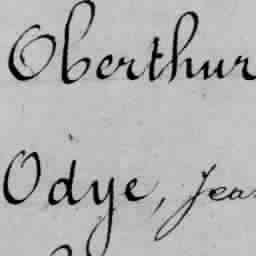 Oberthur
Odye, Jea